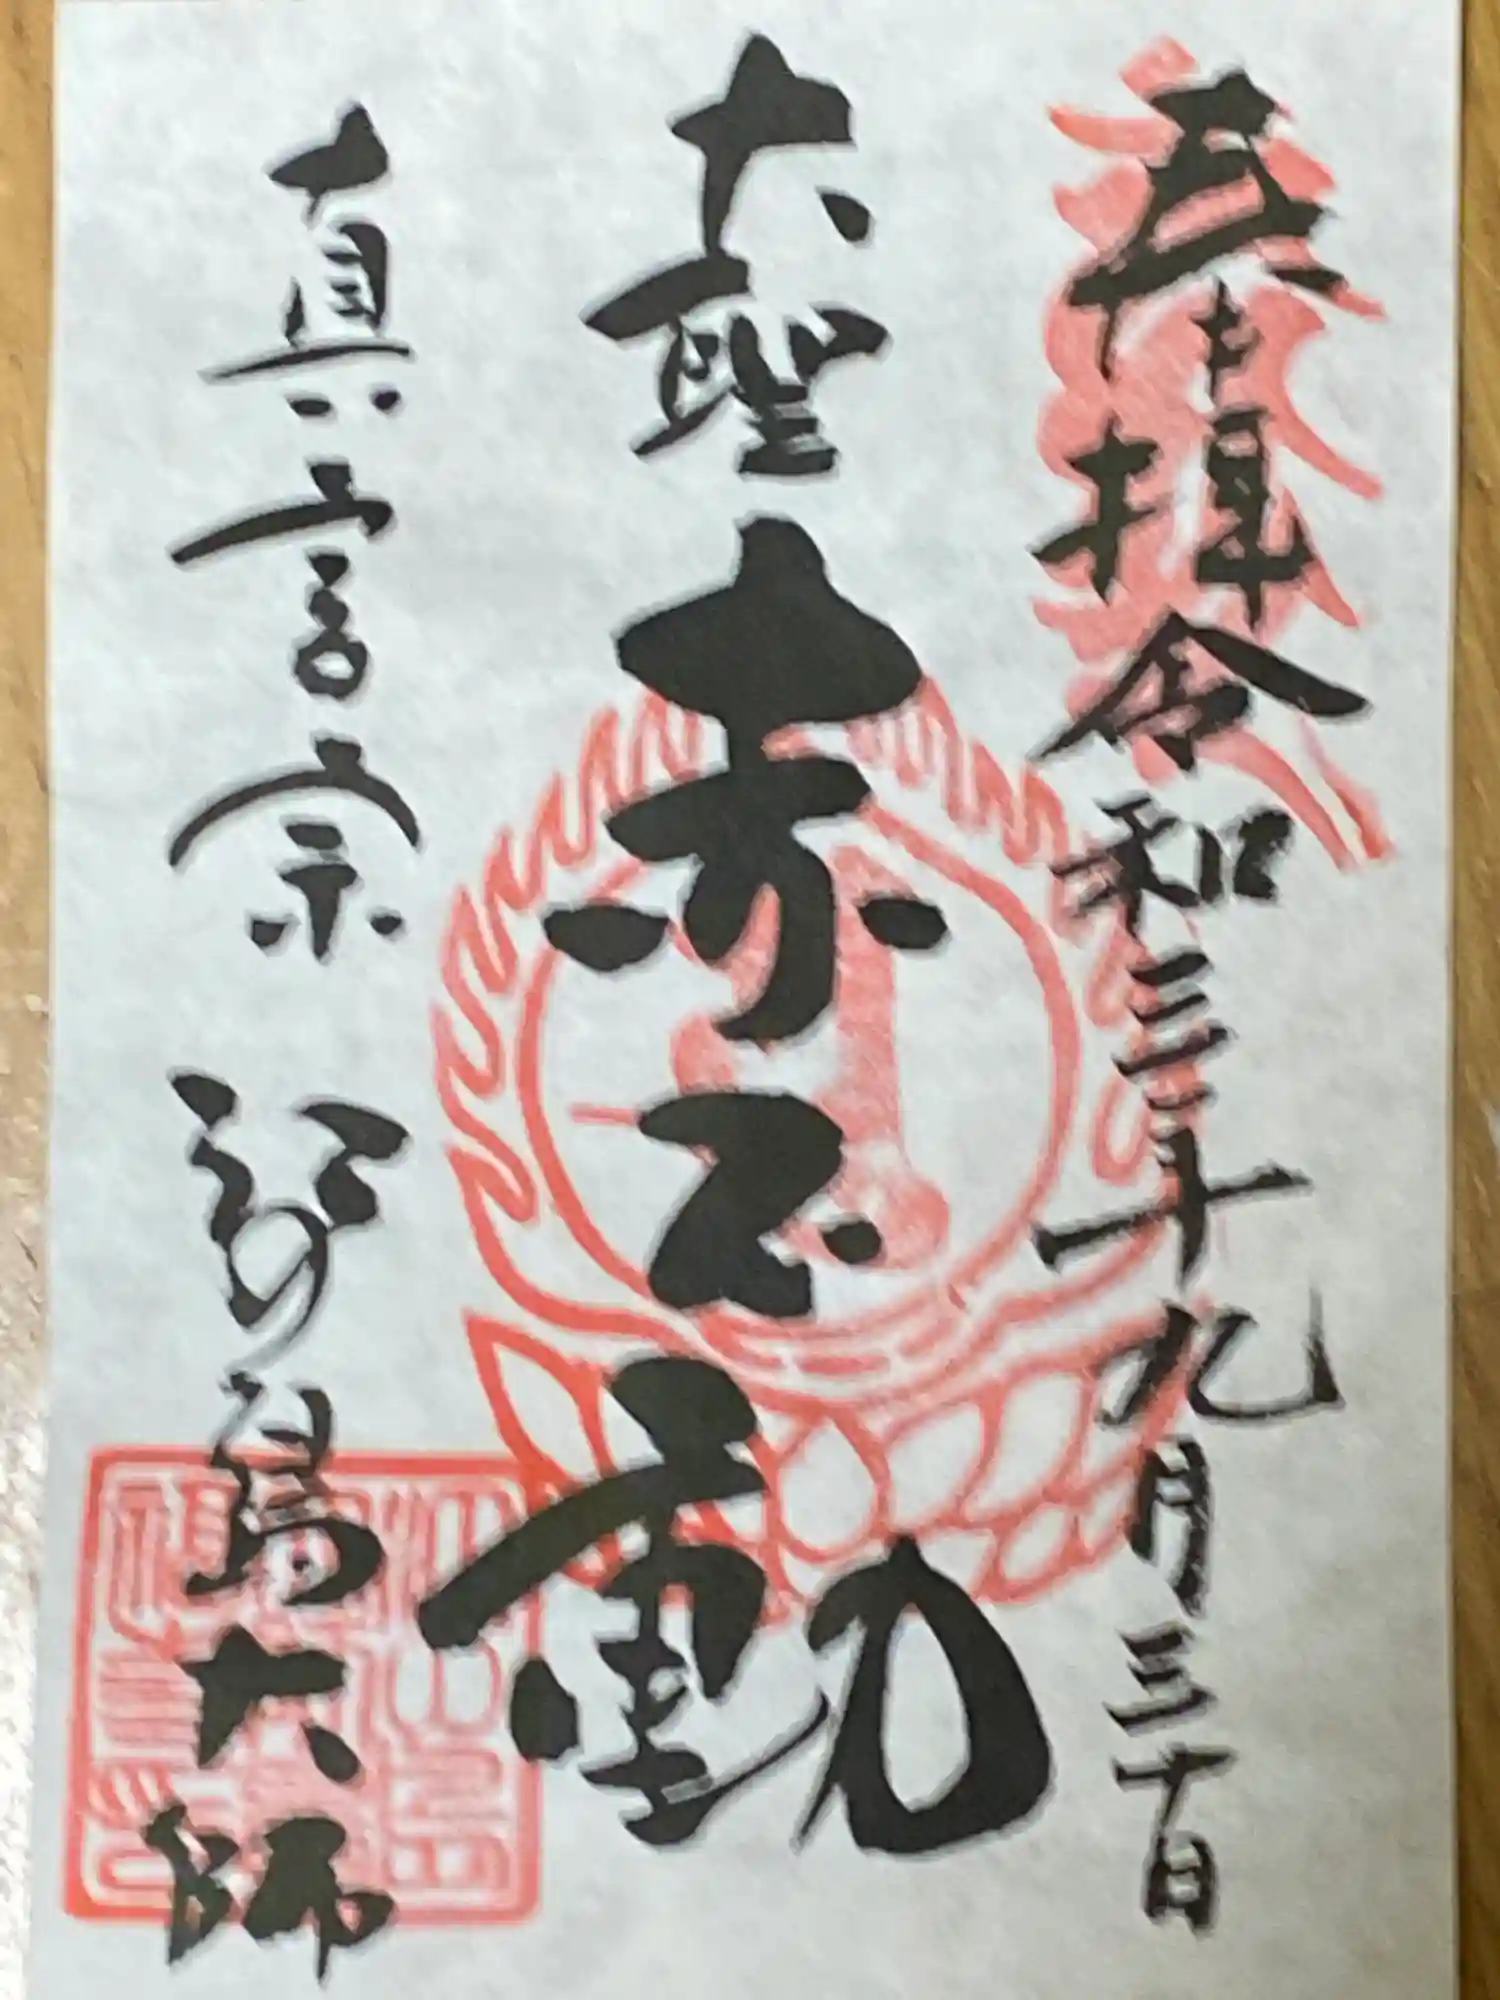 奉拝 令和三年九月三十日
大聖赤不動
真言宗 飛島大師